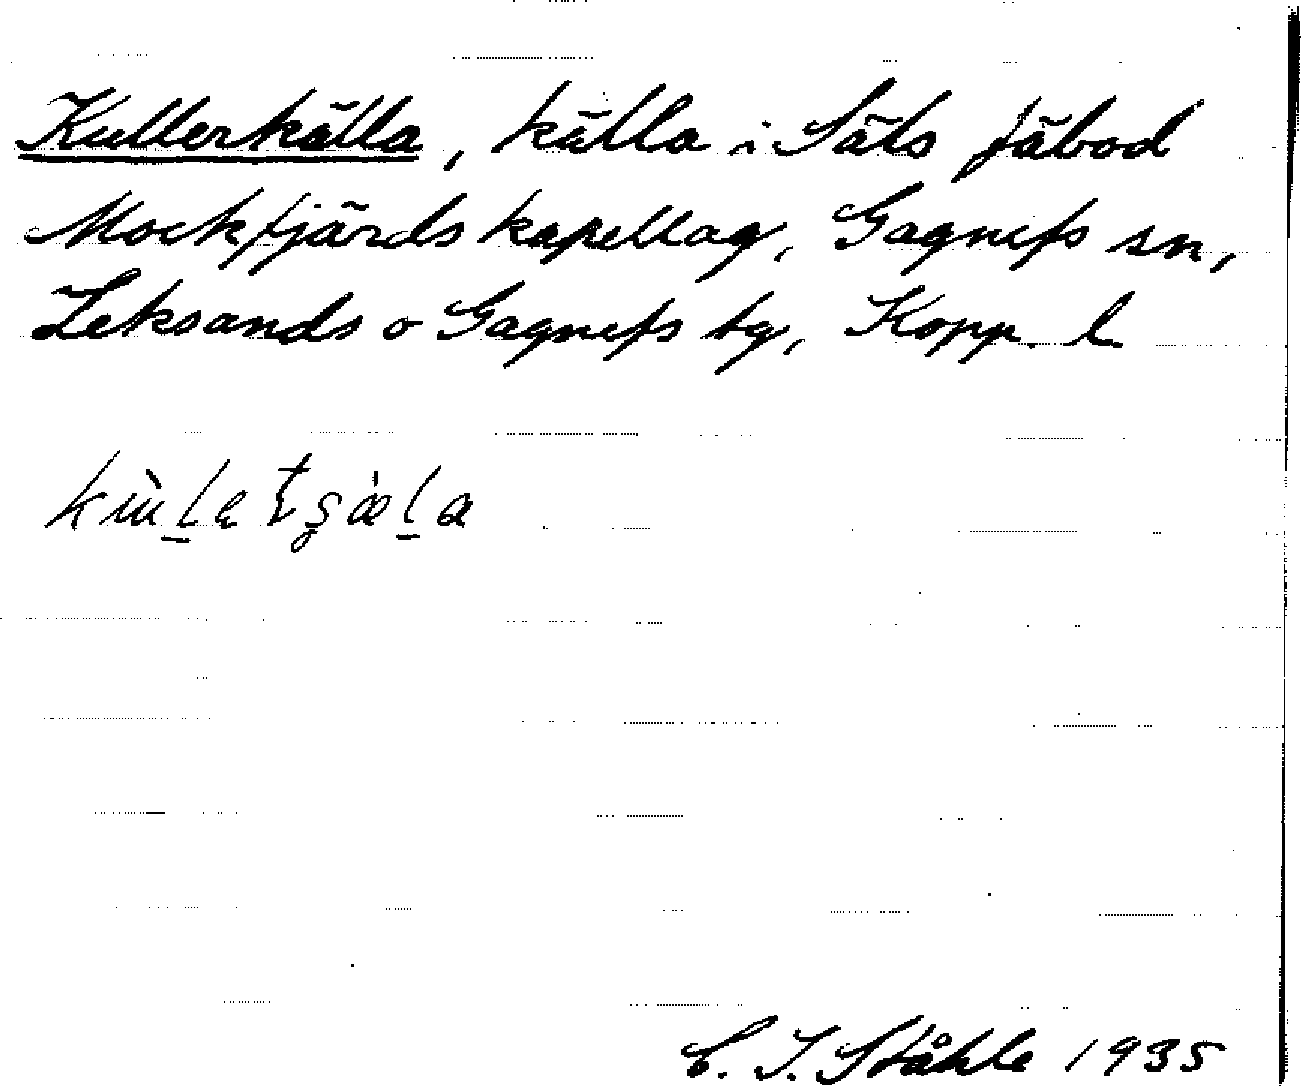 Kullerkälla, källa i Säls fäbod
Mockfjärds kapellag, Gagnefs sn,
Leksands o Gagnefs tg, Kopp. l.
C. I. Ståhle 1935